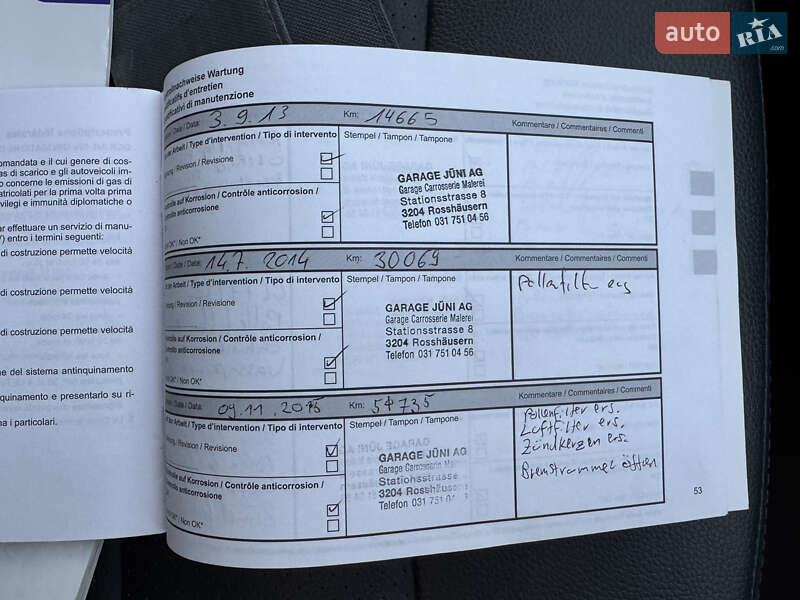 auto RIA.com
omandata e il cui genere di cos-
as di scarico e gli autoveicoli im-
o concerne le emissioni di gas di
atricolati per la prima volta prima
vilegi e immunità diplomatiche o
er effettuare un servizio di manu-
") entro i termini seguenti:
di costruzione permette velocità
di costruzione permette velocità
di costruzione permette velocità
ne del sistema antinquinamento
nquinamento e presentarlo su ri-
na i particolari.
olnachweise Wartung
ificatifs d'entretien
ificativi di manutenzione
/ Date / Data: 3.9.13 Km: 14665 Kommentare / Commentaires / Commenti
Arbeit / Type d'intervention / Tipo di intervento Stempel / Tampon / Tampone
/ Revision / Revisione
GARAGE JÜNI AG
Garage Carrosserie Malerei
Stationsstrasse 8
3204 Rosshäusern
Telefon 031 751 04 56
auf Korrosion / Contrôle anticorrosion /
anticorrosione
OK* / Non OK*
/ Date / Data: 14.7. 2014 Km: 30069 Kommentare / Commentaires / Commenti
der Arbeit / Type d'intervention / Tipo di intervento Stempel / Tampon / Tampone
/ Revision / Revisione
Pollenfilter ers
GARAGE JÜNI AG
Garage Carrosserie Malerei
Stationsstrasse 8
3204 Rosshäusern
Telefon 031 751 04 56
auf Korrosion / Contrôle anticorrosion /
anticorrosione
OK* / Non OK*
/ Date / Data: 09.11.2015 Km: 54735 Kommentare / Commentaires / Commenti
der Arbeit / Type d'intervention / Tipo di intervento Stempel / Tampon / Tampone
/ Revision / Revisione
Pollenfilter ers.
Luftfilter ers.
Zündkerzen ers.
Bremstrommel öffnen
GARAGE JÜNI AG
Garage Carrosserie Malerei
Stationsstrasse
3204 Rosshäusern
Telefon 031 751 04
auf Korrosion / Contrôle anticorrosion /
anticorrosione
OK* / Non OK*
53